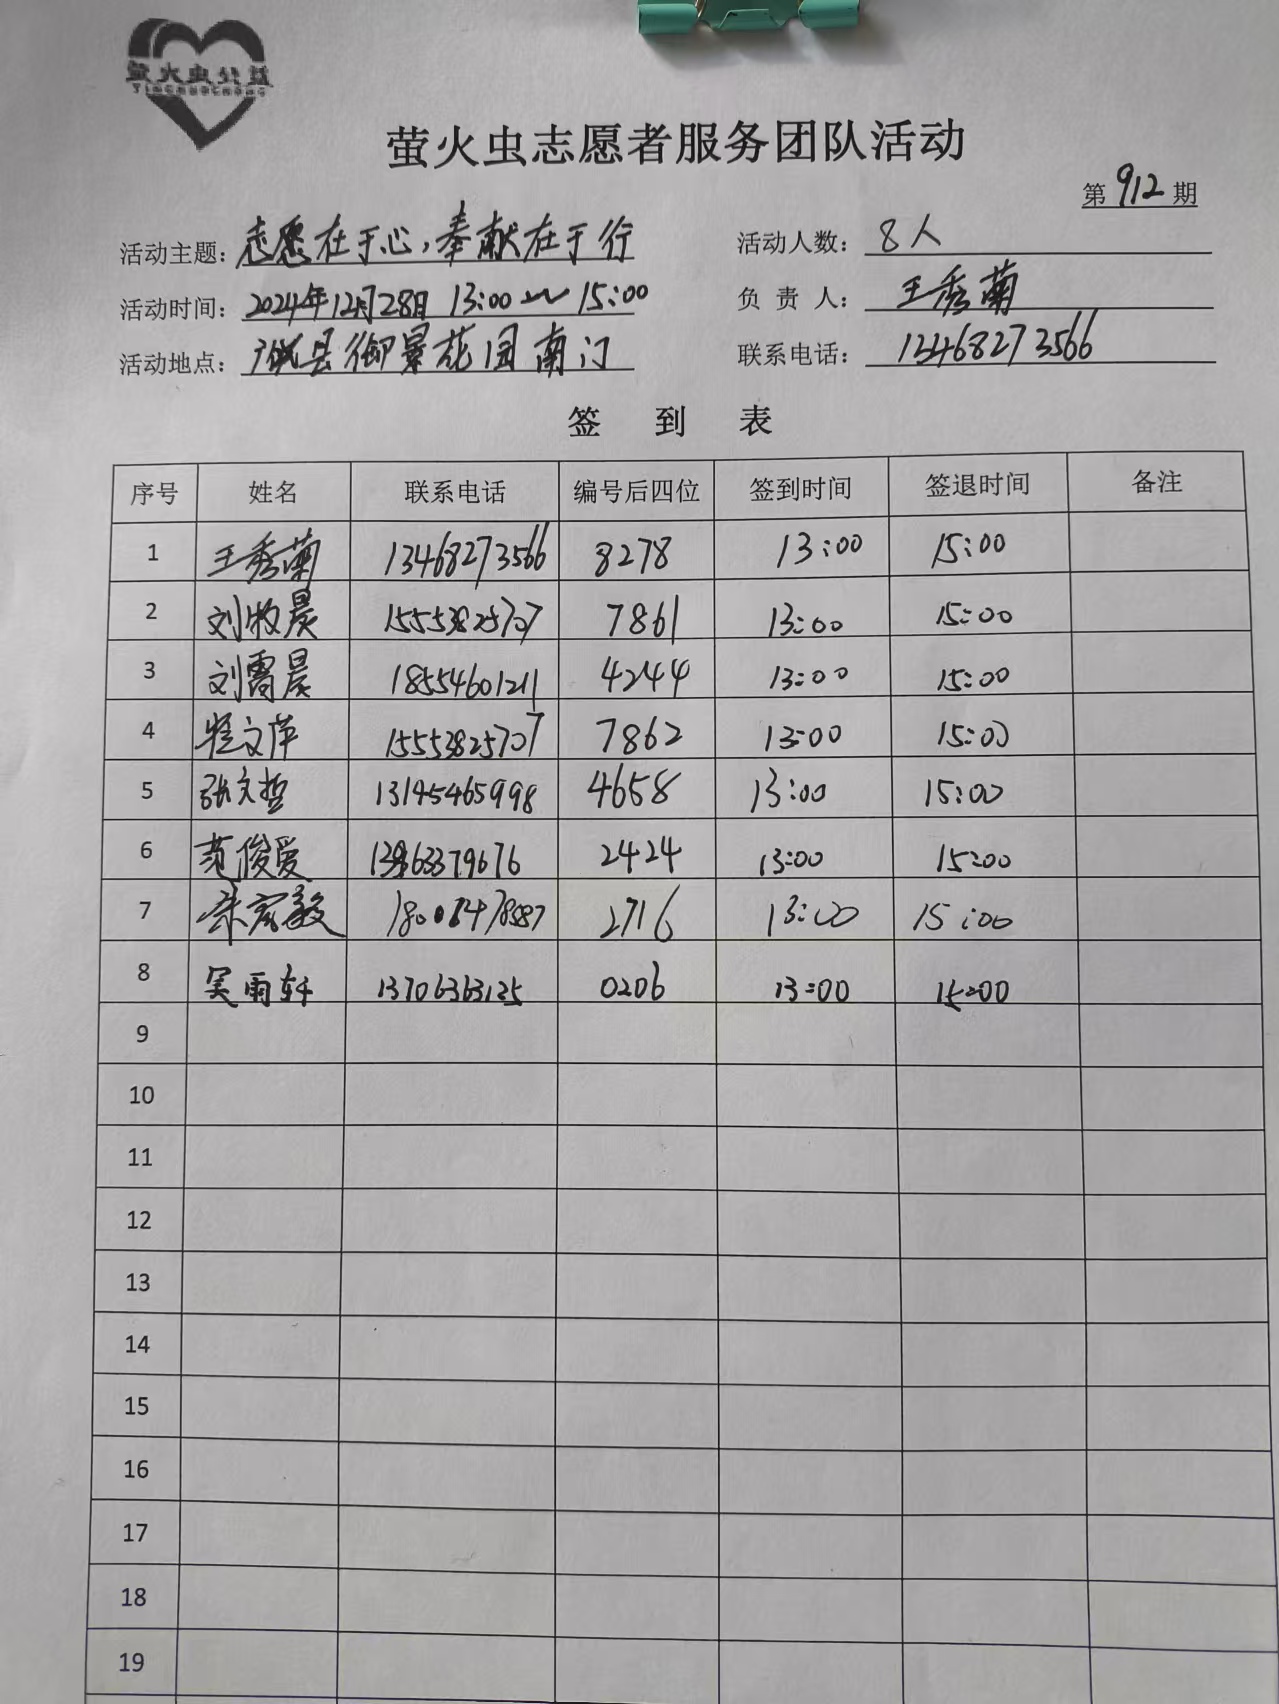 萤火虫公益
YINGHUOCHONG
萤火虫志愿者服务团队活动
第 912 期
活动主题: 志愿在于心,奉献在于行 活动人数: 8人
活动时间: 2024年12月28日 13:00～15:00 负责人: 王秀菊
活动地点: 县御景花园南门 联系电话: 13468273566
签到表
序号 姓名 联系电话 编号后四位 签到时间 签退时间 备注
1 王秀菊 13468273566 8278 13:00 15:00
2 刘牧晨 15553825707 7861 13:00 15:00
3 刘霄晨 18554601211 4244 13:00 15:00
4 文萍 15553825707 7862 13:00 15:00
5 张文哲 13145465998 4658 13:00 15:00
6 范俊爱 2424 13:00 15:00
7 2716 13:00 15:00
8 吴雨轩 13706363135 0206 13:00 15:00
9
10
11
12
13
14
15
16
17
18
19